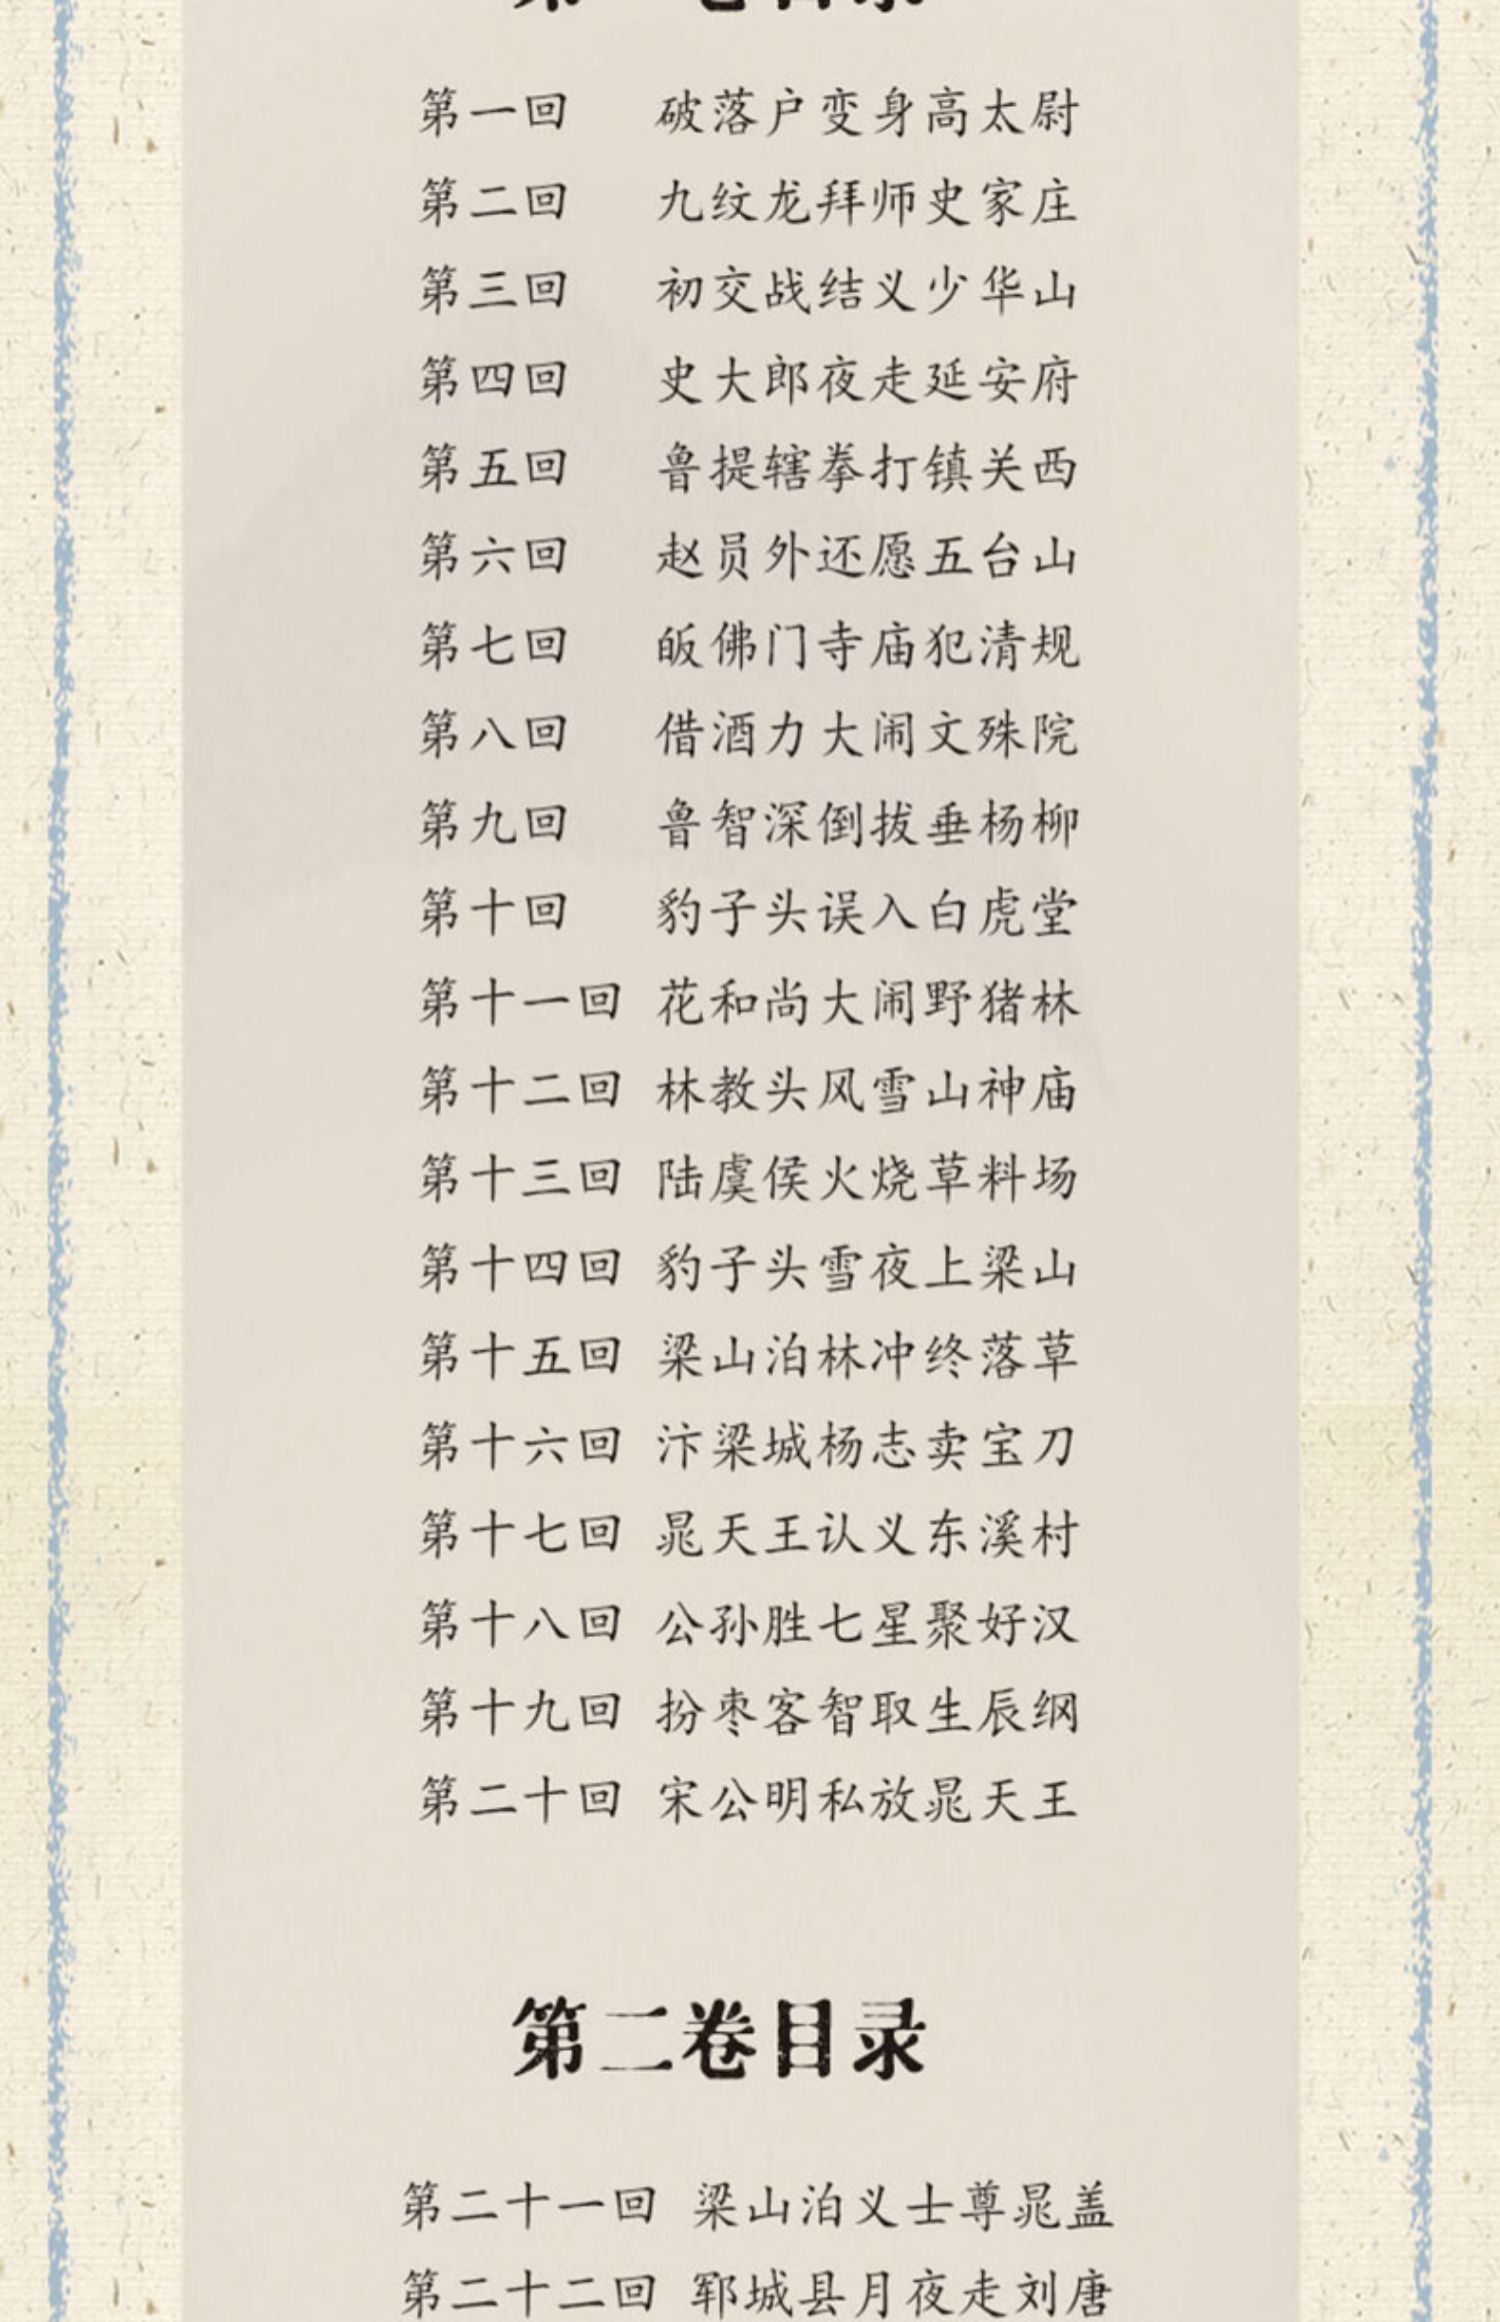 第一回 破落户变身高太尉
第二回 九纹龙拜师史家庄
第三回 初交战结义少华山
第四回 史大郎夜走延安府
第五回 鲁提辖拳打镇关西
第六回 赵员外还愿五台山
第七回 皈佛门寺庙犯清规
第八回 借酒力大闹文殊院
第九回 鲁智深倒拔垂杨柳
第十回 豹子头误入白虎堂
第十一回 花和尚大闹野猪林
第十二回 林教头风雪山神庙
第十三回 陆虞侯火烧草料场
第十四回 豹子头雪夜上梁山
第十五回 梁山泊林冲终落草
第十六回 汴梁城杨志卖宝刀
第十七回 晁天王认义东溪村
第十八回 公孙胜七星聚好汉
第十九回 扮枣客智取生辰纲
第二十回 宋公明私放晁天王
第二卷目录
第二十一回 梁山泊义士尊晁盖
第二十二回 郓城县月夜走刘唐